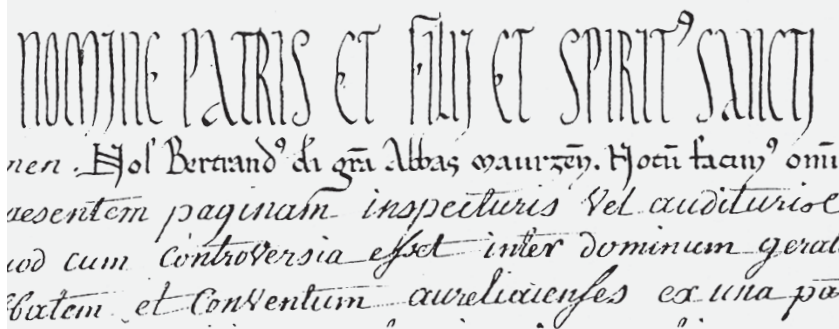 NOMINE PATRIS ET FILIJ ET SPIRIT⁹ SANCTJ
nen. Nos Bertrand⁹ di grā Abbas maurzēn. Notū facim⁹ omi
aesentem paginam inspecturis vel audituris
uod cum Controversia esset inter dominum geral
bbatem et Conventum aureliacenses ex una pa